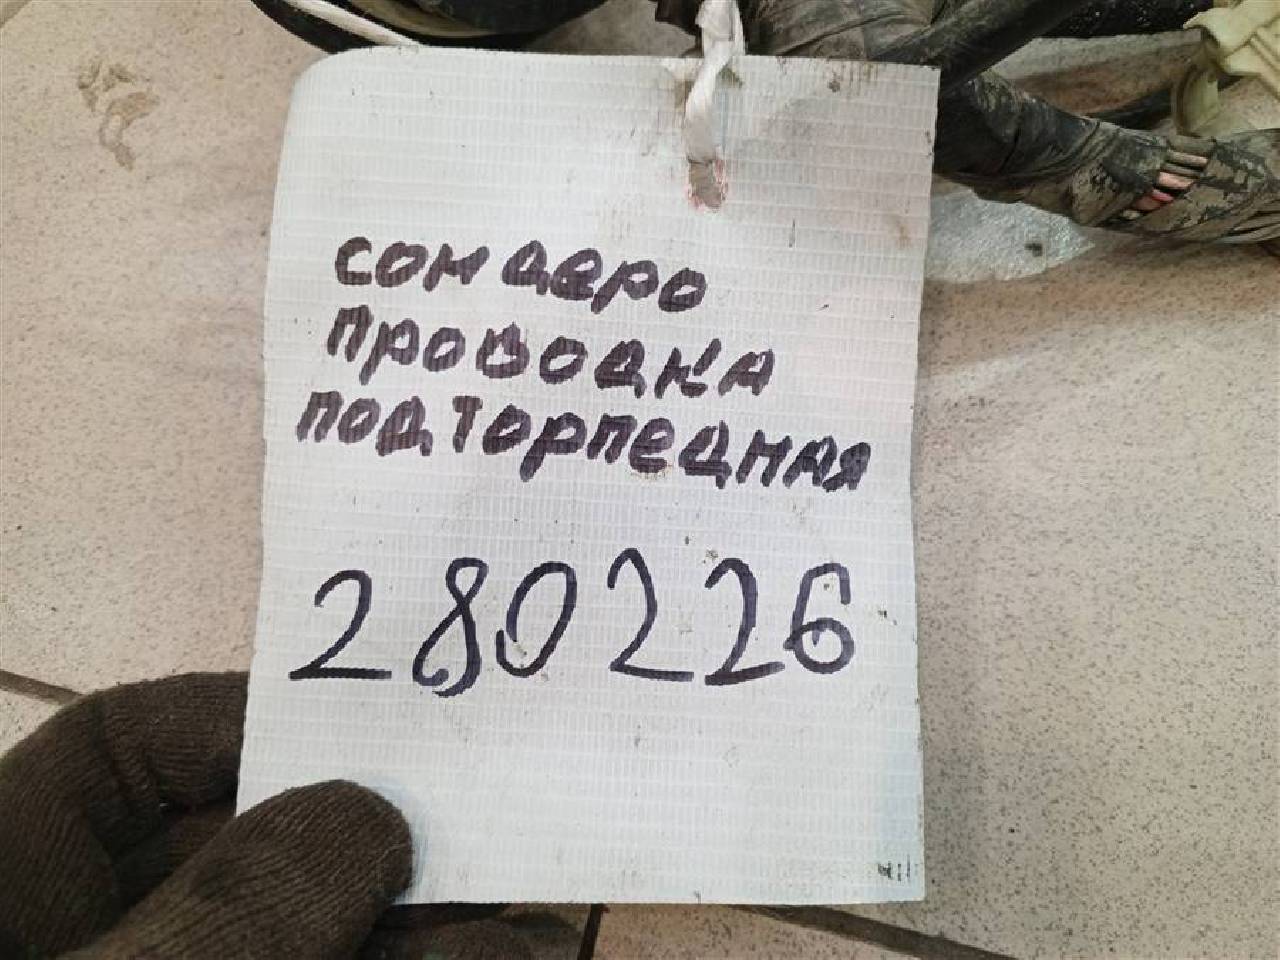 сондеро
проводка
подторпедная
280226